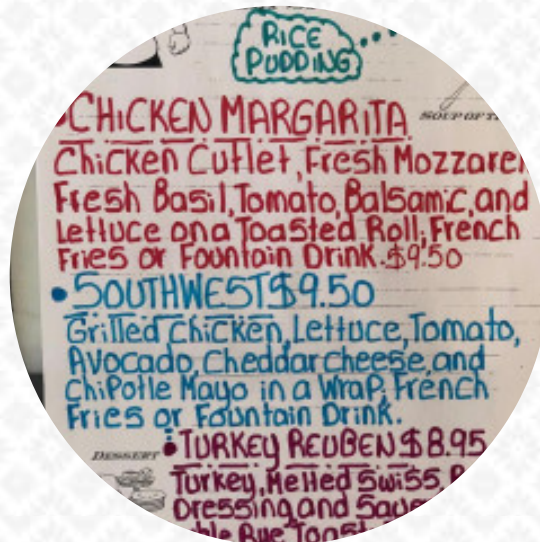 RICE
PUDDING
CHICKEN MARGARITA
SOUP OF
Chicken Cutlet, Fresh
Fresh Basil, Tomato, Balsamic, and
Lettuce on a Toasted Roll, French
Fries or Fountain Drink. $9.50
• SOUTHWEST $9.50
Grilled Chicken, Lettuce, Tomato,
Avocado, Cheddar cheese, and
Chipotle Mayo in a Wrap, French
Fries or Fountain Drink.
DESSERT
• TURKEY REUBEN $8.95
Turkey, Melted Swiss,
Dressing and
Rye Toast